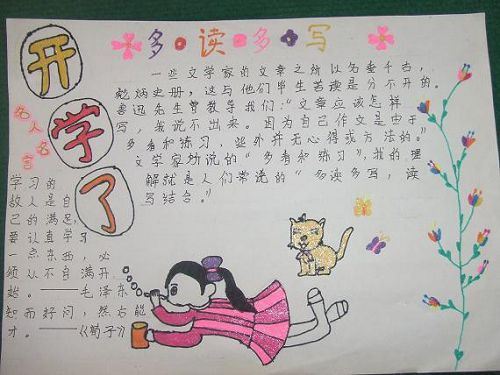 开学了
多读多写
一些文学家的文章之所以名垂千古,
乾炳史册,这与他们毕生苦读是分不开的。
鲁迅先生曾教导我们:“文章应该怎样
写,我说不出来。因为自己作文是由于
多看和练习,些外并无心得或方法的。”
文学家劝说的“多看和练习”,我的理
解就是人们常说的“多读多写,读
写结合。”
名人名言
学习的
敌人是自
己的满足,
要认真学习
一点东西,必
须从不自满开
始。——毛泽东
知而好问,然后能
才。——《荀子》